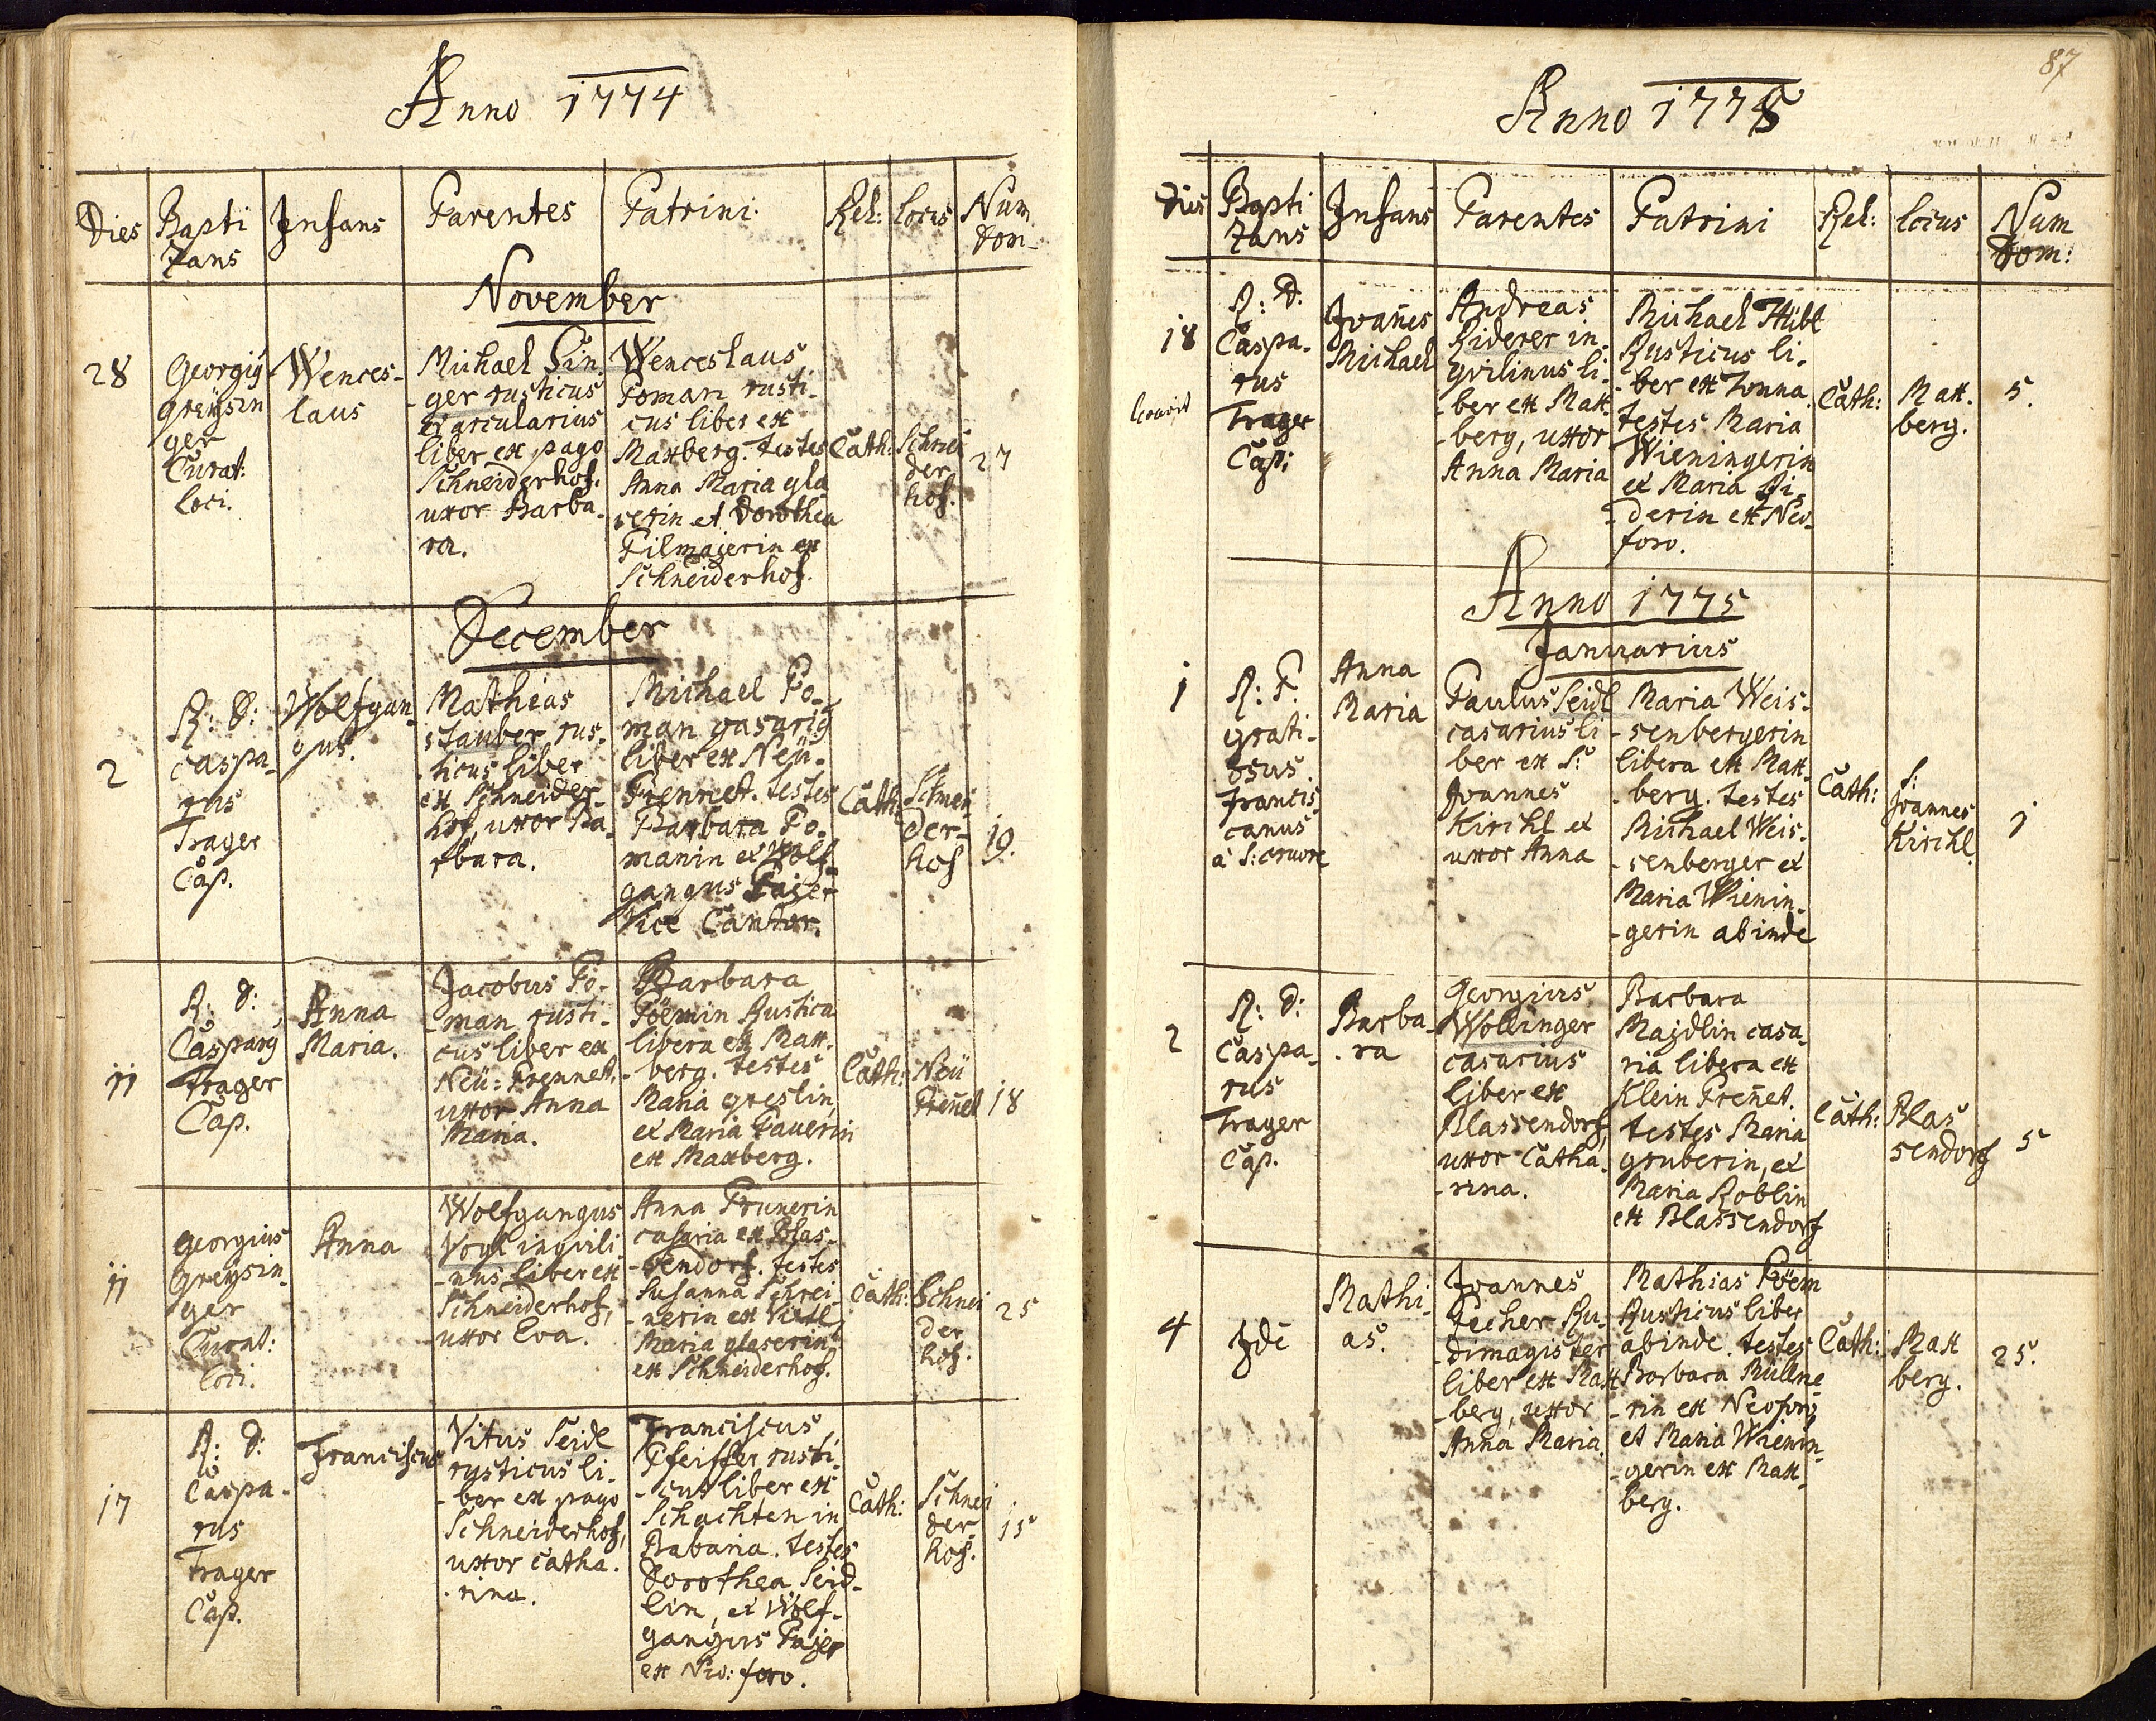 Anno 1774
Dies
Bapti
zans
Infans
Parentes
Patrini
Rel:
locus
Num
dom
November
28
Georgiy
greysin
ger
Curat:
loci.
Wences-
laus
Michael Pin
-ger rusticus
et arcularius
liber ex pago
Schneiderhof.
uxor Barba-
ra.
Wenceslaus
Poman rusti-
cus liber ex
Maxberg. testes
Anna Maria gla
serin et Dorothea
Pilmajerin ex
Schneiderhof.
Cath:
Schnei
der
hof.
27
December
2
R: D:
caspa-
rus
Trager
Cap.
Wolfgan-
gus.
Mathias
stauber rus-
ticus liber
ex Schneider-
hof, uxor Ba-
rbara.
Michael Po-
man casariy
liber ex Neü-
Prennet. testes
Barbara Po-
manin et Wolf-
gangus Pajer
Vice Cantor.
Cath:
Schnei
der-
hof
19.
11
R: D:
Caspary
Trager
Cap.
Anna
Maria.
Jacobus Po-
-man rusti-
cus liber ex
Neü-Prennet,
uxor Anna
Maria.
Barbara
Pöemin Rustica
libera ex Max-
-berg. testes
Maria greslin,
et Maria Pauerin
ex Maxberg.
Cath:
Neü
Preñet
18
11
georgius
Greysin-
ger
Curat:
loci.
Anna
Wolfgangus
Vogl inqvili-
-nus liber ex
Schneiderhof,
uxor Eva.
Anna Prunerin
casaria ex Blas-
-sendorf. testes
Susanna Schrei
-nerin ex Viertl
Maria glaserin
ex Schneiderhof.
Cath:
Schnei
der
hof.
25
17
R: D:
Caspa-
rus
Trager
Cap.
Franciscus
Vitus Seidl
rusticus li-
-ber ex pago
Schneiderhof,
uxor Catha-
-rina.
Franciscus
Pfeiffer rusti-
-cus liber ex
Schachten in
Babaria. testes
Dorothea Seid-
lin, et Wolf-
gangus Pajer
ex Neo: foro.
Cath:
Schnei
der
hof.
15
87
Anno 1775
Dies
Bapti
zans
Infans
Parentes
Patrini
Rel:
locus
Num
Dom:
18
R: D:
Caspa-
rus
Trager
Cap:
Joañes
Michael
Andreas
Riderer in-
qvilinus li-
-ber ex Max-
-berg, uxor
Anna Maria
Michael Hibl
Rusticus li-
-ber ex Donna.
testes Maria
Wieningerin
et Maria Ri-
-derin ex Neo-
foro.
Cath:
Max-
berg.
5.
Anno 1775
Januarius
1
R: P.
grati-
osus
Francis
canus
à S: cruore
Anna
Maria
Paulus Seidl
casarius li-
ber ex S:
Joannes
Kirchl et
uxor Anna
Maria Weis-
-senbergerin
libera ex Max-
-berg. testes
Michael Weis-
-senberger et
Maria Wienin-
-gerin abinde
Cath:
S:
Joannes
Kirchl.
1
2
R: D:
Caspa-
rus
Trager
Cap.
Barba-
-ra
Georgius
Wollinger
casarius
liber ex
Blassendorf,
uxor Catha-
-rina.
Barbara
Majdlin casa
ria libera ex
Klein Preñet.
testes Maria
gruberin, et
Maria Roblin
ex Blassendorf
Cath:
Blas
sendorf
5
4
Jde
Mathi-
as.
Joannes
Fecher Ru-
-dimagister
liber ex Max
-berg, uxor
Anna Maria.
Mathias Pöem
Rusticus liber
abinde. testes
Barbara Müllne
-rin ex Neoforo
et Maria Wienin-
-gerin ex Max-
berg.
Cath:
Max
berg.
25.